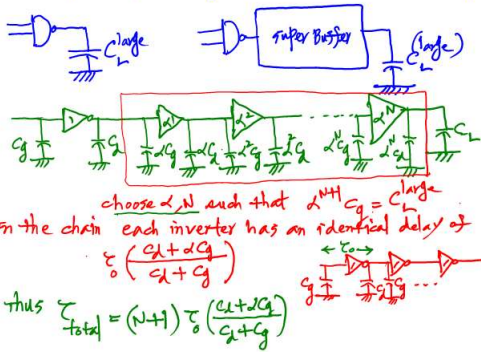 C_L^large
super Buffer
C_L^(large)
1 α1 α² α^N
C_g C_d αC_g αC_d α²C_g α²C_d ...... α^N C_g α^N C_d C_L
choose α, N such that α^(N+1) C_g = C_L^large
n the chain each inverter has an identical delay of
τ₀ ((C_d + αC_g) / (C_d + C_g))
← τ₀ →
C_g C_d C_g ...
thus τ_total = (N+1) τ₀ ((C_d + αC_g) / (C_d + C_g))